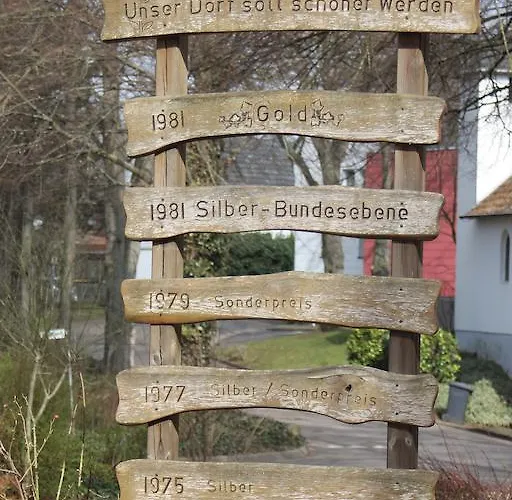 Unser Dorf soll schöner werden
1981 Gold
1981 Silber-Bundesebene
1979 Sonderpreis
1977 Silber / Sonderpreis
1975 Silber